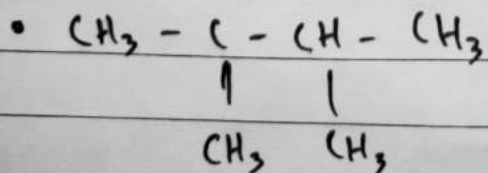 • CH3 - C - CH - CH3
|| |
CH3 CH3